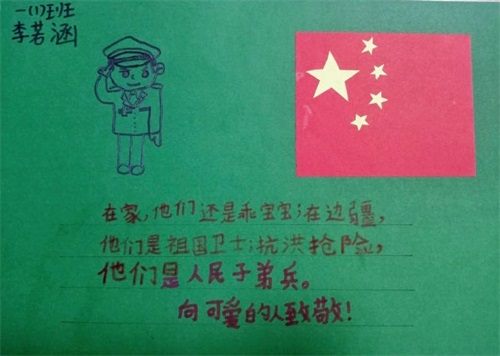 一(1)班
李若涵
在家,他们还是乖宝宝;在边疆,
他们是祖国卫士;抗洪抢险,
他们是人民子弟兵。
向可爱的人致敬!